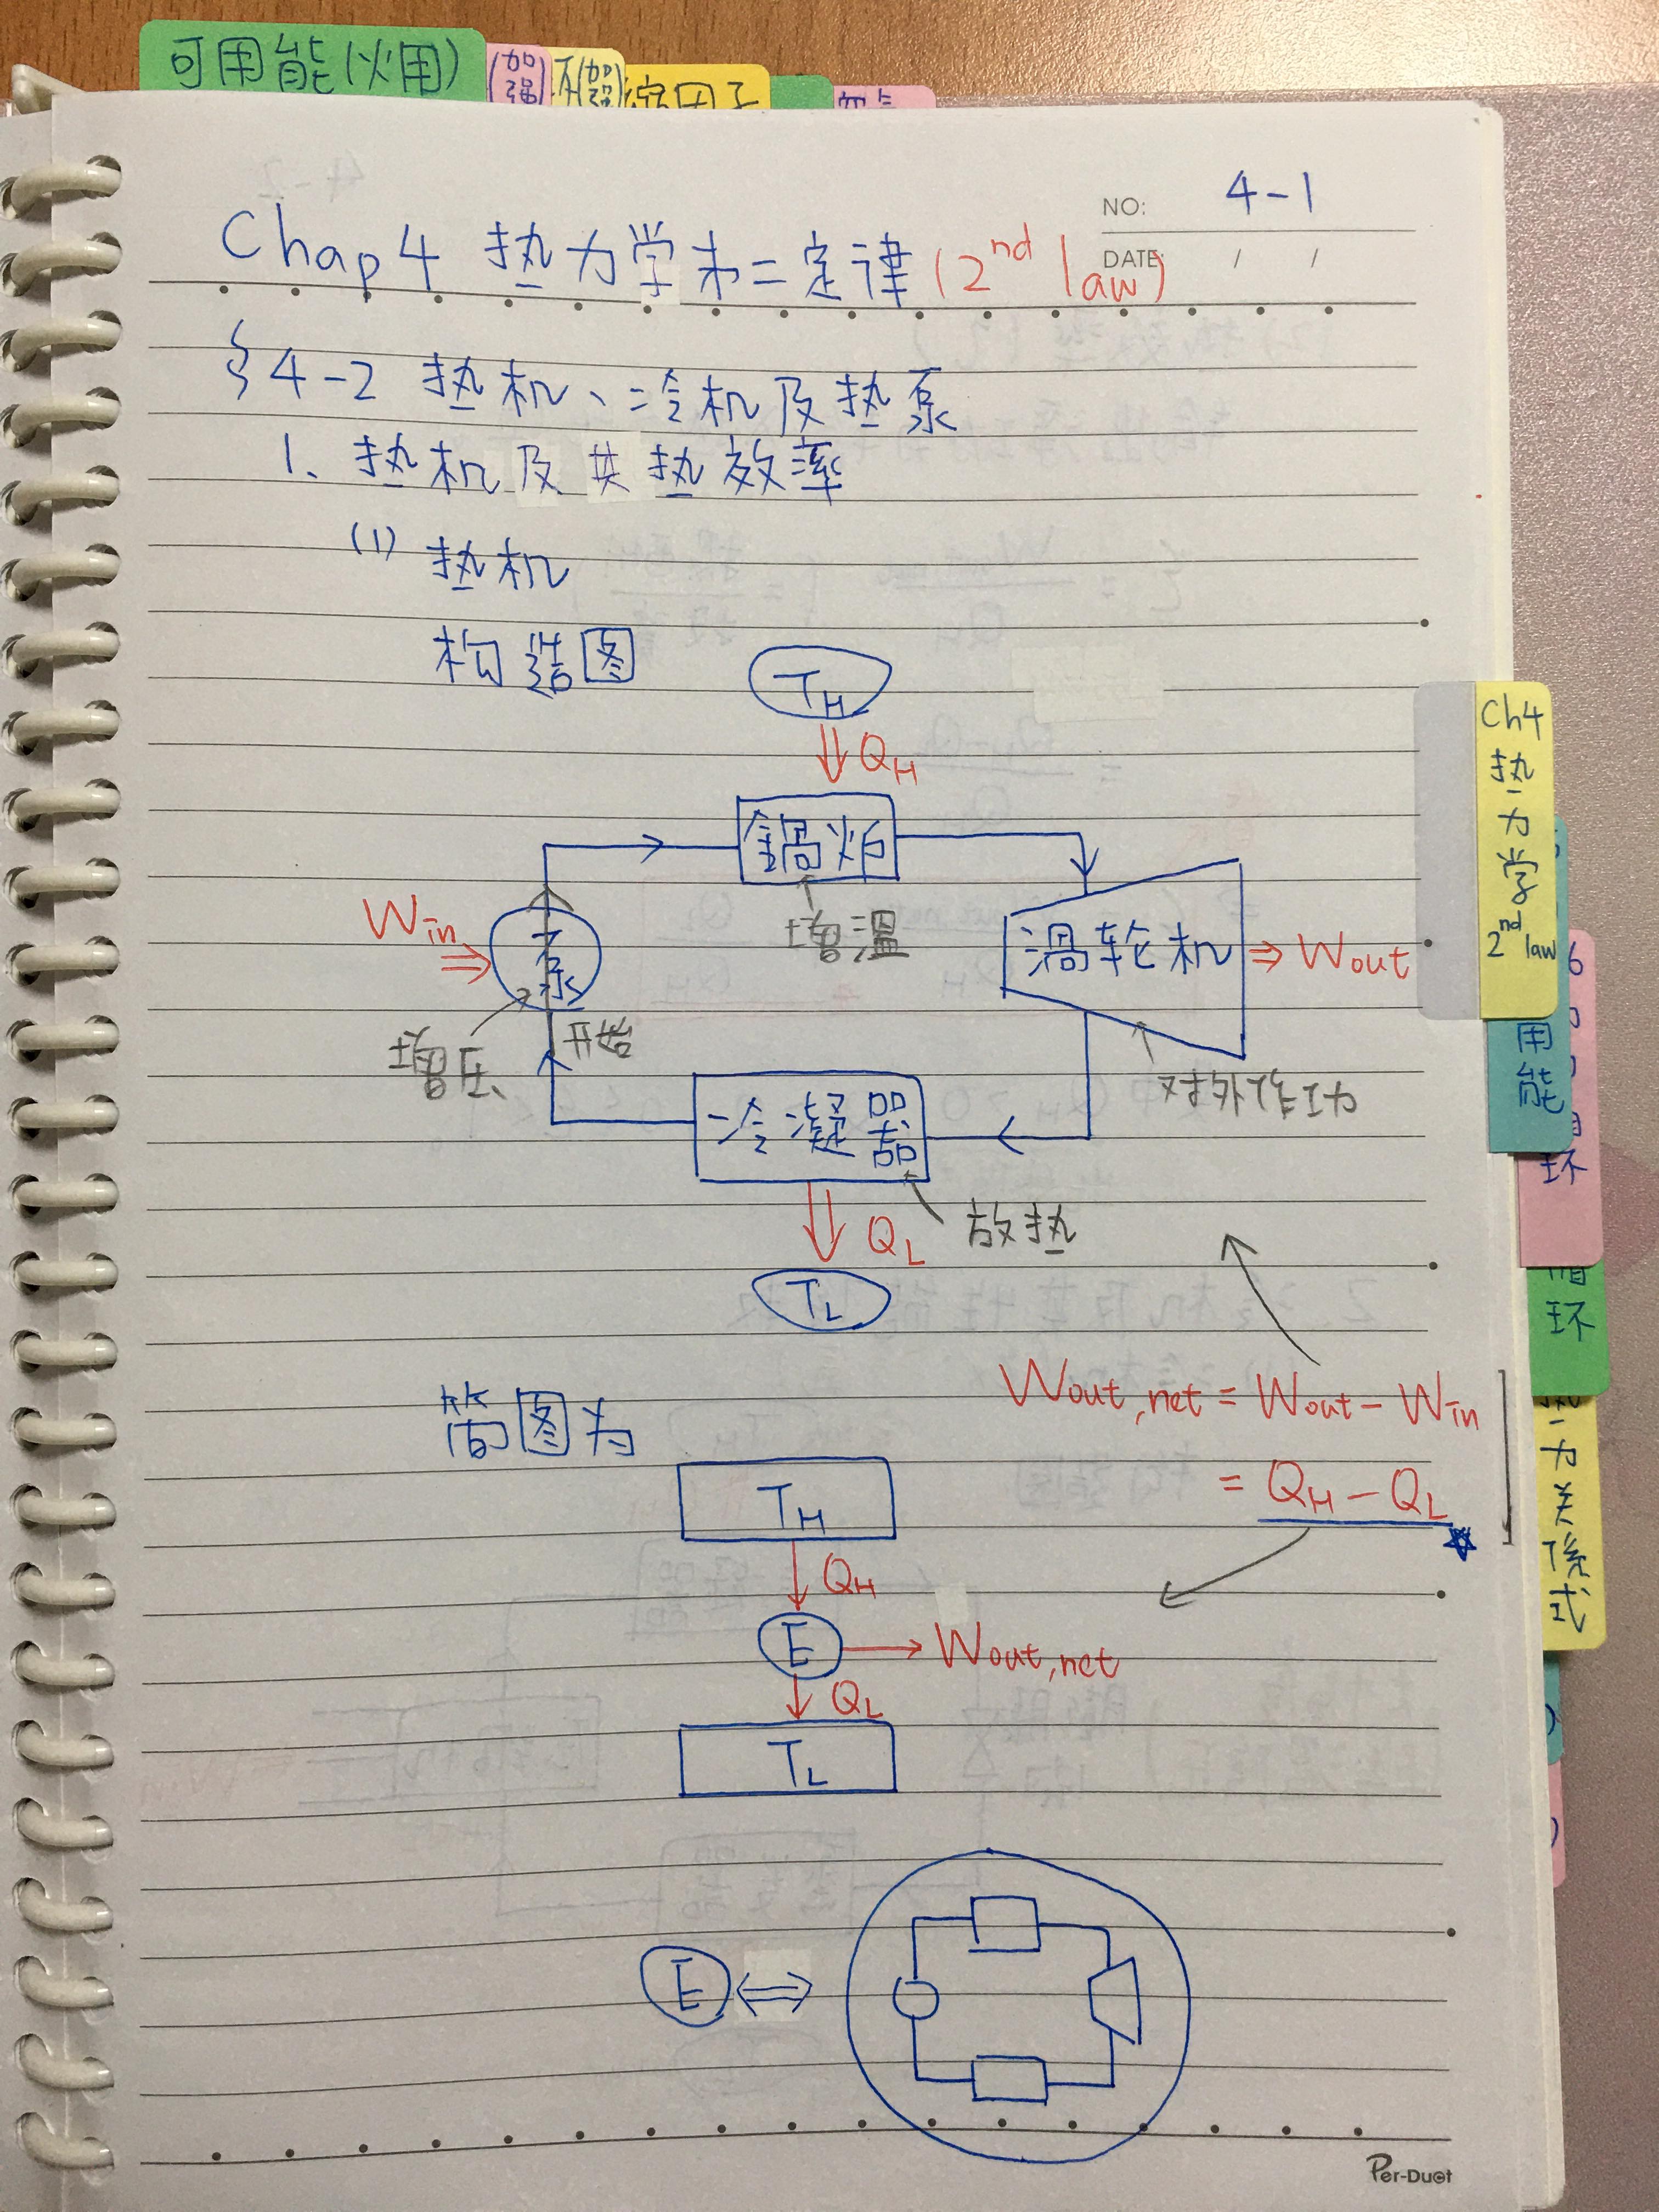 可用能(火用)
(加强)
不(加强)
NO: 4-1
DATE: / /
Chap 4 热力学第二定律(2nd law)
§4-2 热机、冷机及热泵
1. 热机及其热效率
(1) 热机
构造图
TH
QH
鍋炉
增温
Win
泵
增压
开始
渦轮机
Wout
对外作功
冷凝器
放热
QL
TL
Wout,net = Wout - Win
= QH - QL
简图为
TH
QH
E
Wout,net
QL
TL
E
Per-Duct
Ch4
热
力
学
2nd law
用
能
环
循
环
力
关
係
式